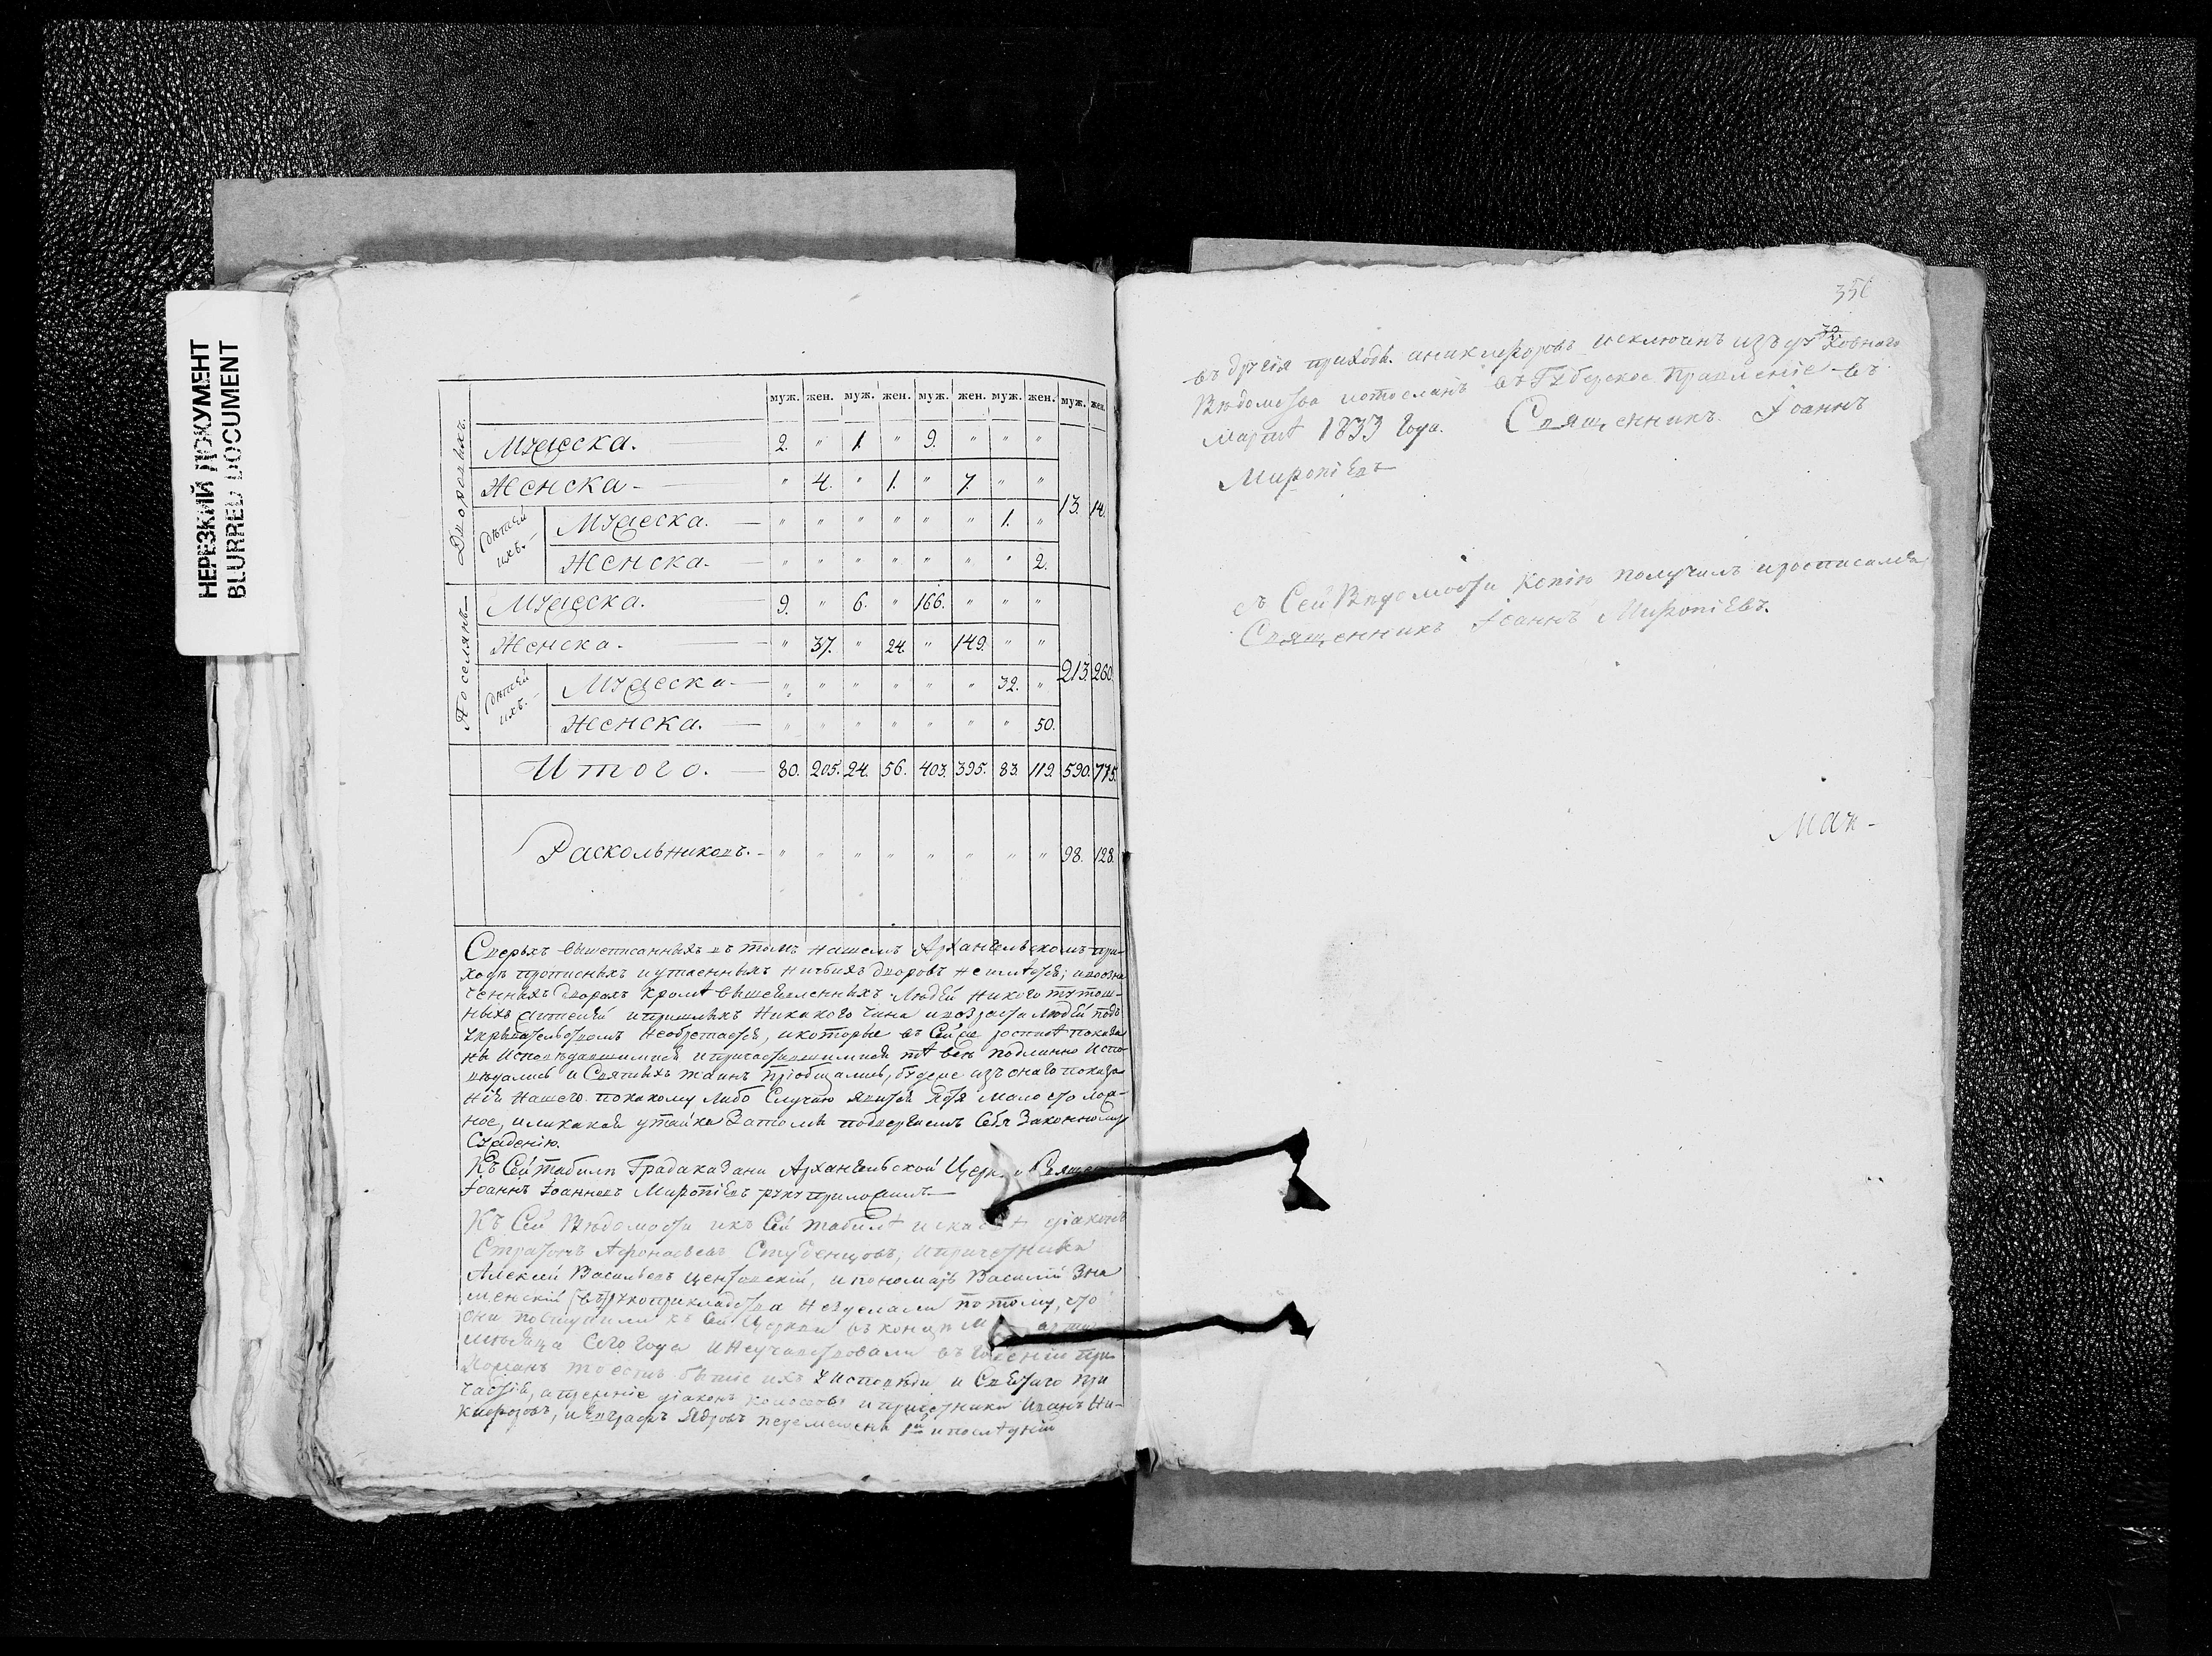 НЕРЕЗКИЙ ДОКУМЕНТ
BLURRED DOCUMENT
муж. жен. муж. жен. муж. жен. муж. жен. муж. жен.
Дворовыхъ.
Мужеска. 2. " 1. " 9. " " "
Женска " 4. " 1. " 7. " "
13. 14.
дѣтей ихъ.
Мужеска. " " " " " " 1. "
Женска. " " " " " " " 2.
Поселянъ
Мужеска. 9. " 6. " 166. " " "
Женска. " 37. " 24. " 149. " "
213. 260.
дѣтей ихъ.
Мужеска " " " " " " 32. "
Женска. " " " " " " " 50.
Итого. 80. 205. 24. 56. 403. 395. 83. 119. 590. 775.
Раскольниковъ. " " " " " " " " 98. 128.
Сверхъ вышеписанныхъ въ томъ нашемъ Архангельскомъ при-
ходѣ прописныхъ и утаенныхъ ничьихъ дворовъ не имѣется; и во озна
ченныхъ дворахъ кромѣ вышеявленныхъ людей никого тутош-
ныхъ жителей и пришлыхъ никакого чина и возраста людей подъ
укрывательствомъ необретается, и которые въ сей же росписѣ показа
ны исповѣдавшимися и причастившимися тѣ всѣ подлинно испо-
вѣдались и Святыхъ таинъ пріобщались, будеже изъ онаго показа
нія нашего покакому либо случаю явится хотя мало что лож-
ное, или какая утайка затоли подвергаемъ себя законному
сужденію.
Къ сей табели Града Казани Архангельской Церкви Священ
Іоаннъ Іоанновъ Миропіевъ руку приложилъ.
Къ сей Вѣдомости и къ сей табелѣ діаконъ
Стратонъ Афонасьевъ Студенцовъ, и причетники
Алексѣй Васильевъ и пономарь Василій Зна
менскій рукоприкладства не зделали потому, что
они поступили къ сей Церкви въ концѣ
мѣсяца сего года и неучаствовали въ при
хожанъ тоесть бытіе ихъ у исповѣди и Святаго при
частія, а прежніе діаконъ и причетники Иванъ Ни-
кифоровъ, и Евграфъ Ядровъ перемѣщены 1й и послѣдній
356
въ другія приходы. а никифоровъ исключенъ изъ духовнаго
Вѣдомства и отосланъ въ Губерское Правленіе въ
Мартѣ 1833 года. Священникъ Іоаннъ
Миропіевъ
съ Сей Вѣдомости копію получилъ и росписался
Священникъ Іоаннъ Миропіевъ.